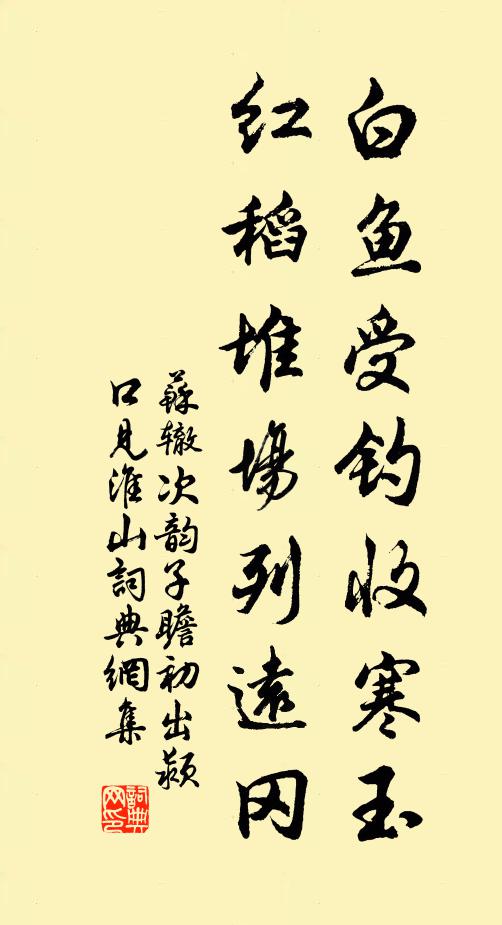 白鱼受钓收寒玉
红稻堆場列遠冈
蘇辙次韵子瞻初出颍
口見淮山詞典網集
詞典
网印